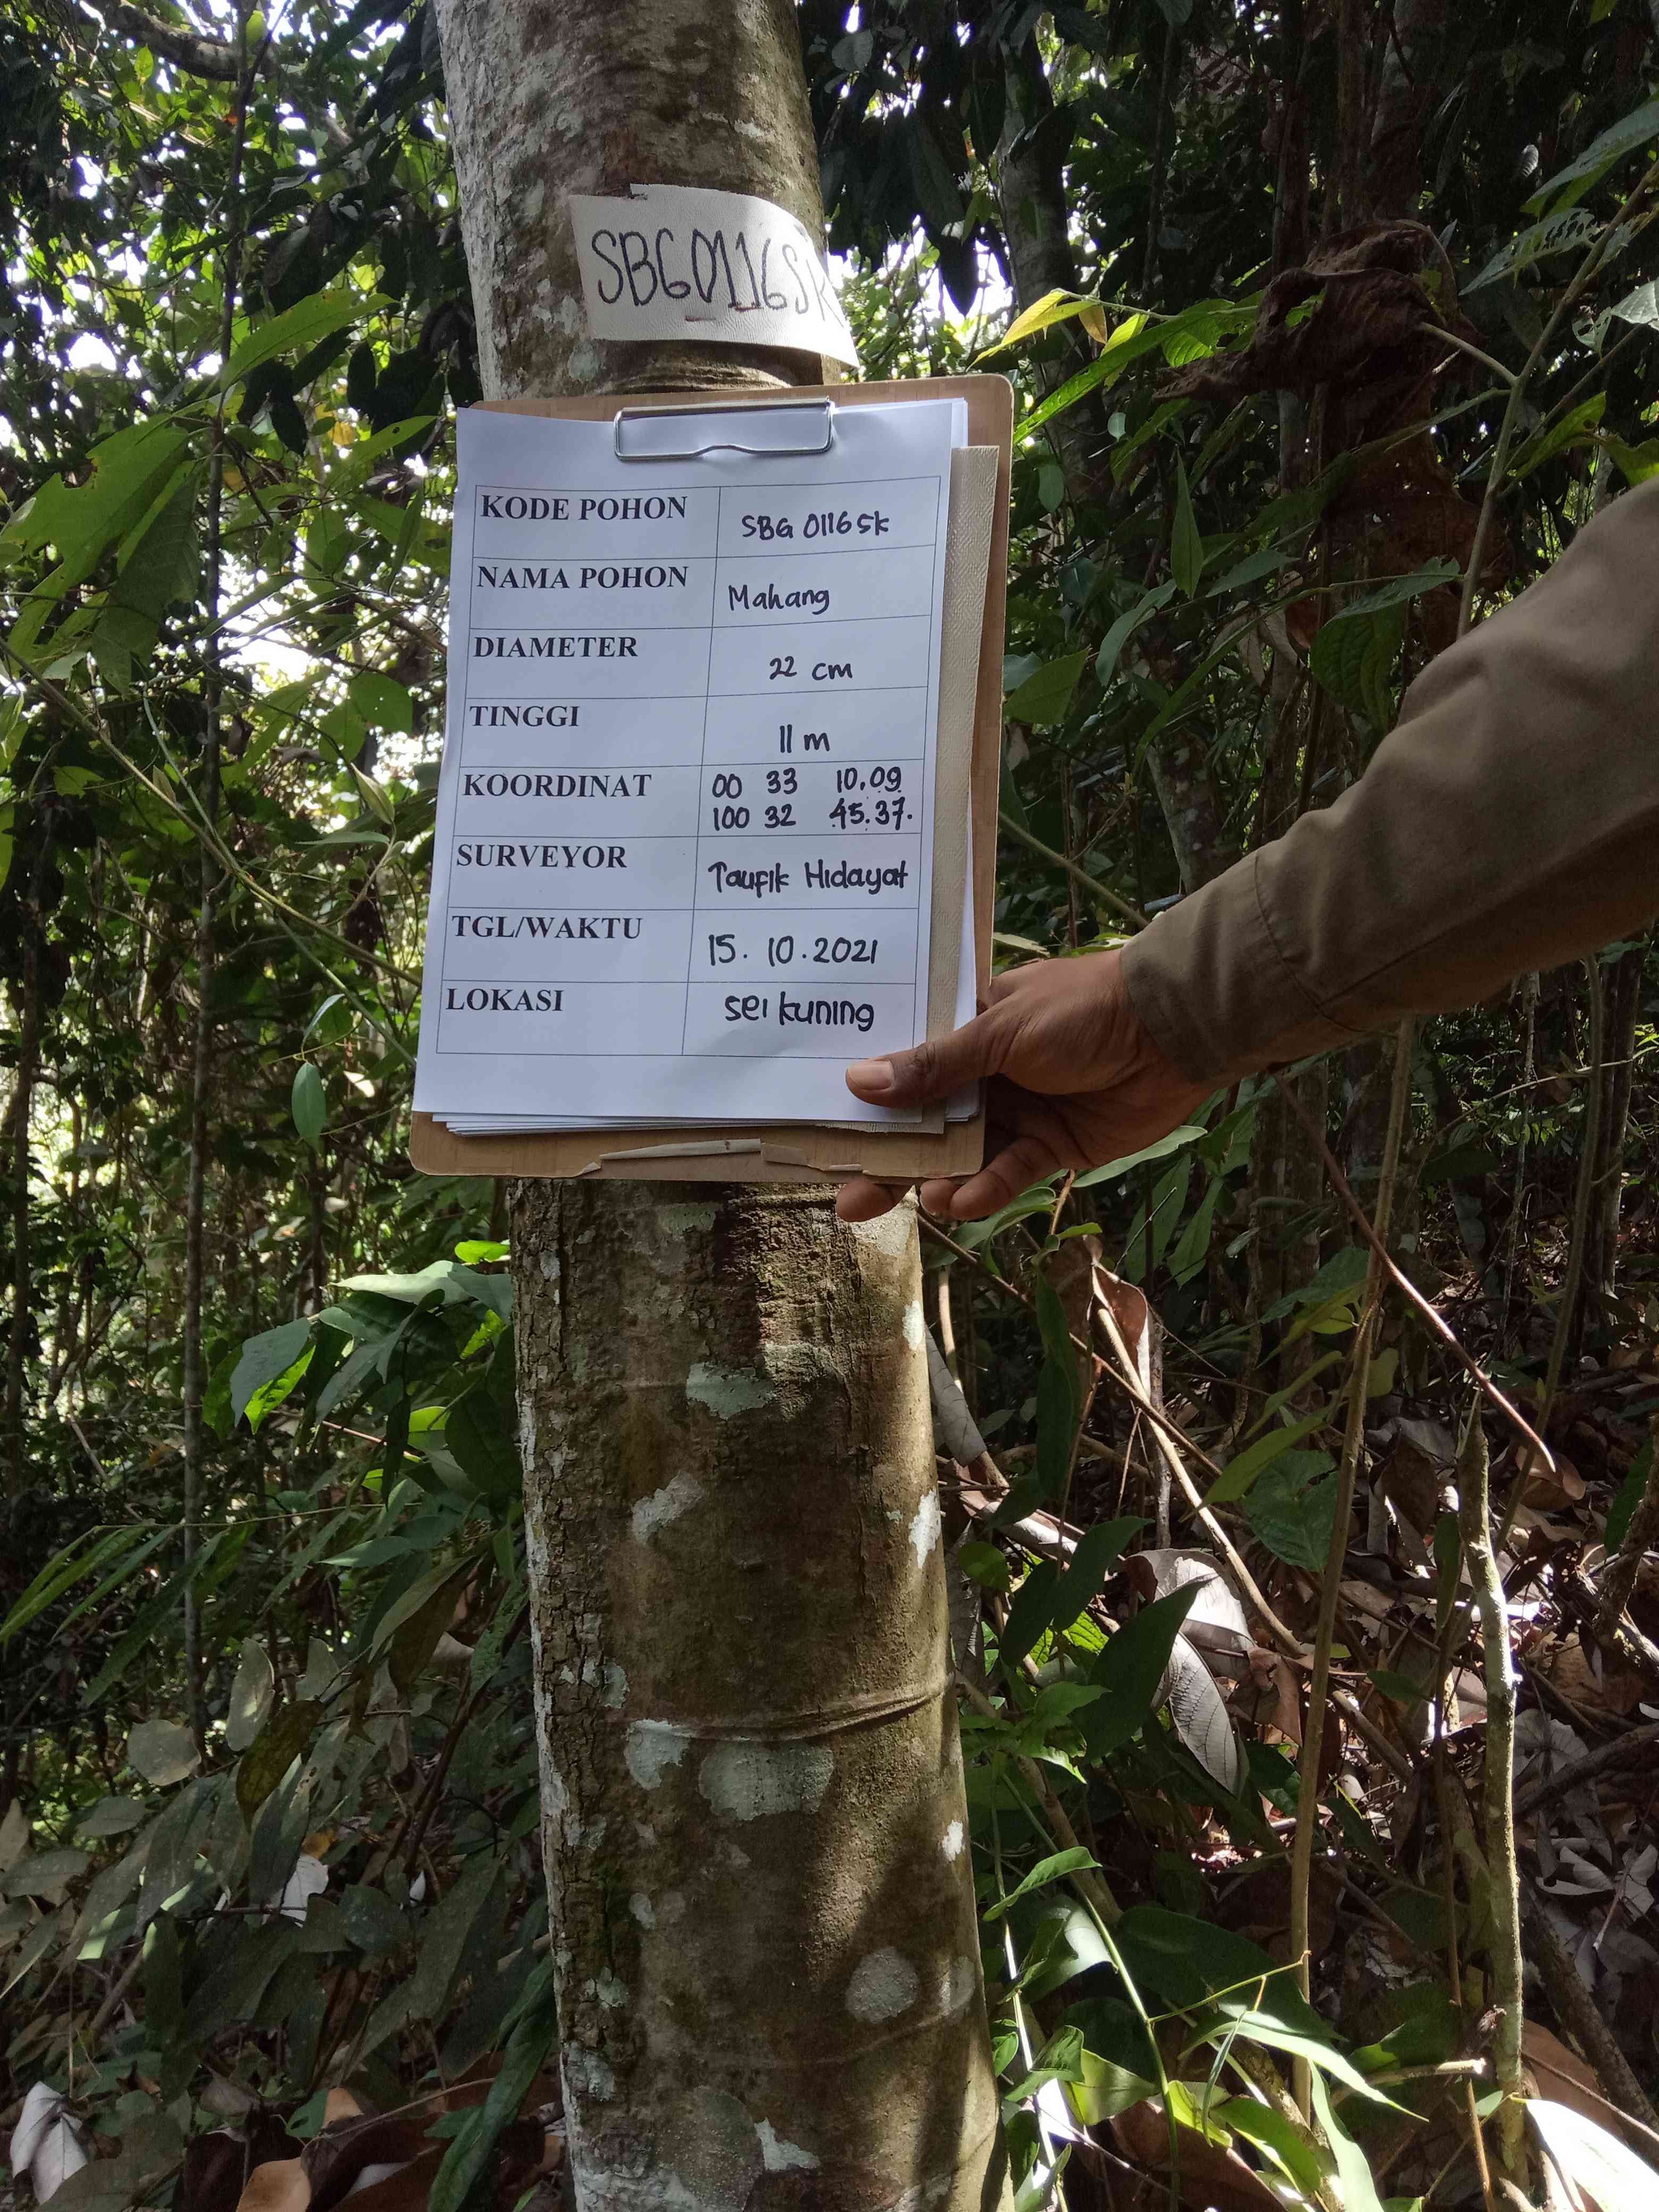 SBG0116SK
KODE POHON SBG 0116 SK
NAMA POHON Mahang
DIAMETER 22 cm
TINGGI 11 m
KOORDINAT 00 33 10.09
100 32 45.37.
SURVEYOR Taufik Hidayat
TGL/WAKTU 15. 10.2021
LOKASI Sei kuning